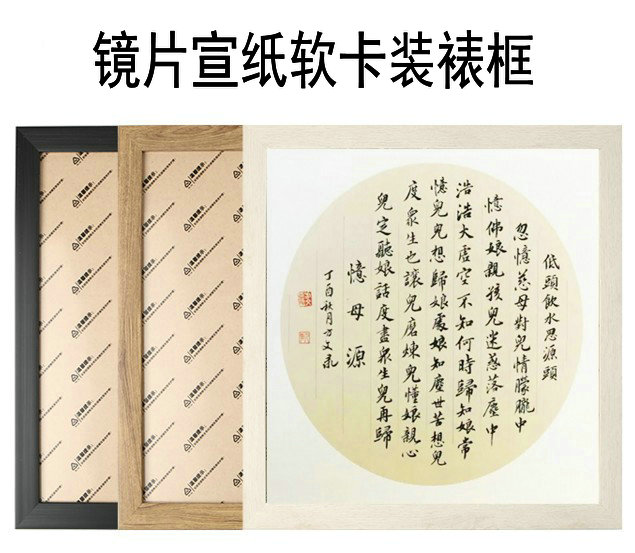 镜片宣纸软卡装裱框
低頭飲水思源頭
忽憶慈母對兒情朦朧中
憶佛娘親孩兒迷惑落塵中
浩浩大虛空不知何時歸知娘常
憶兒兒想歸娘處娘知塵世苦想兒
度衆生也讓兒磨煉兒懂娘親心
兒定聽娘話度盡衆生兒再歸
憶母源
丁酉秋月方文
温馨提示